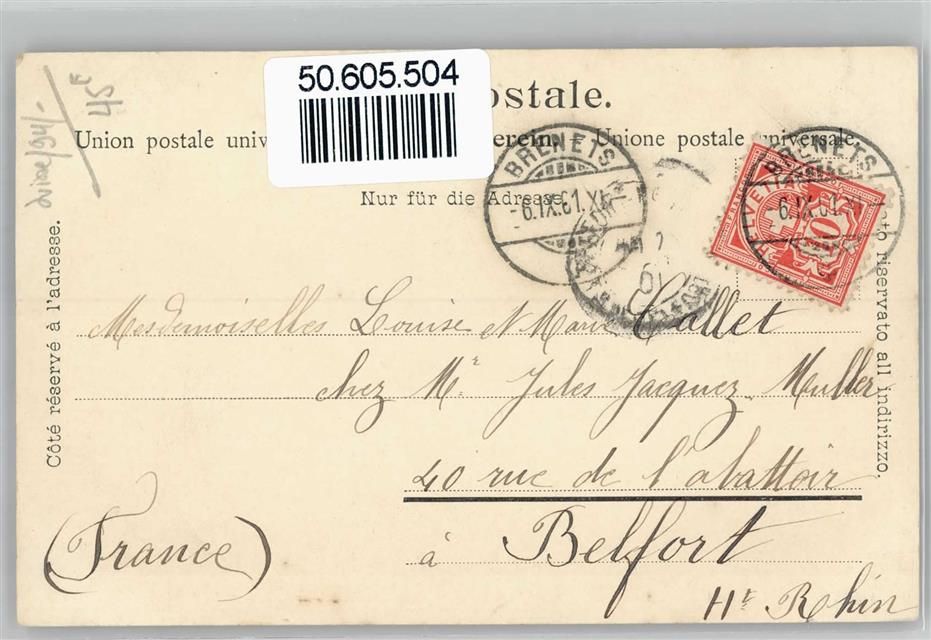 50.605.504
ostale.
Union postale univ erein. Unione postale universale.
Nur für die Adresse.
Côté réservé à l'adresse.
ato riservato all indirizzo.
45
BRENETS
6.IX.01.XI
BRENETS
6.IX.01.XI
FRANCO
HELVETIA
10
Mesdemoiselles Louise et Marie Callet
chez Mr Jules Jacquez-Muller
40 rue de l'abattoir
à Belfort
(France)
Ht Rhin